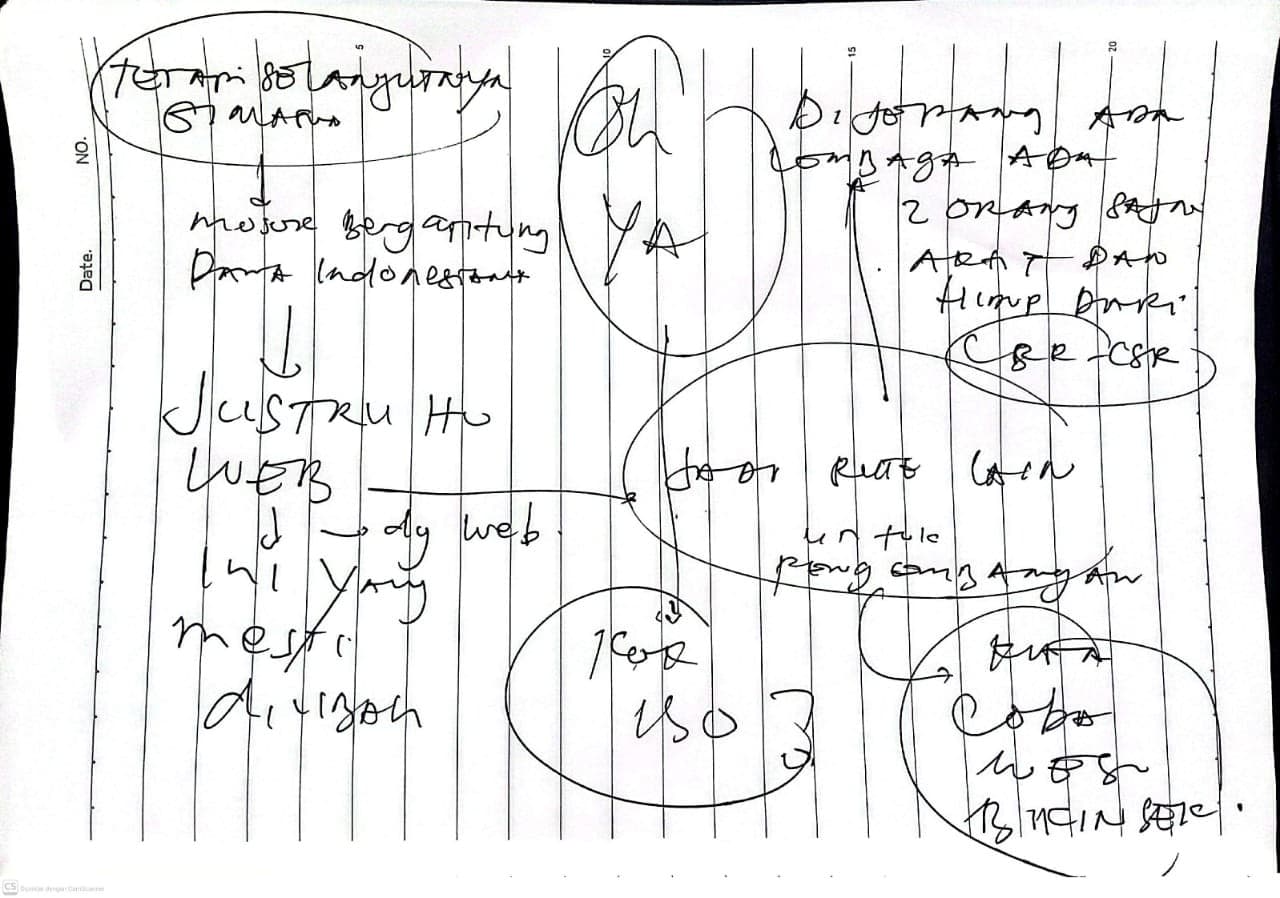 NO.
Date.
5
10
15
20
TETAPI SELANJUTNYA
GIMANA
BERGANTUNG
DANA INDONESIANA
JUSTRU
WEB
→ dg web.
INI YANG
MESTI
DIUBAH
Oh
YA
DI JEPANG ADA
LEMBAGA ADA
2 ORANG SAJA
DAN
HIDUP DARI
CSR-CSR
JADI RUTE LAIN
untuk
PENGEMBANGAN
KOK
ISO ?
KITA
Coba
WES
BIKIN SEK.
CS Dipindai dengan CamScanner